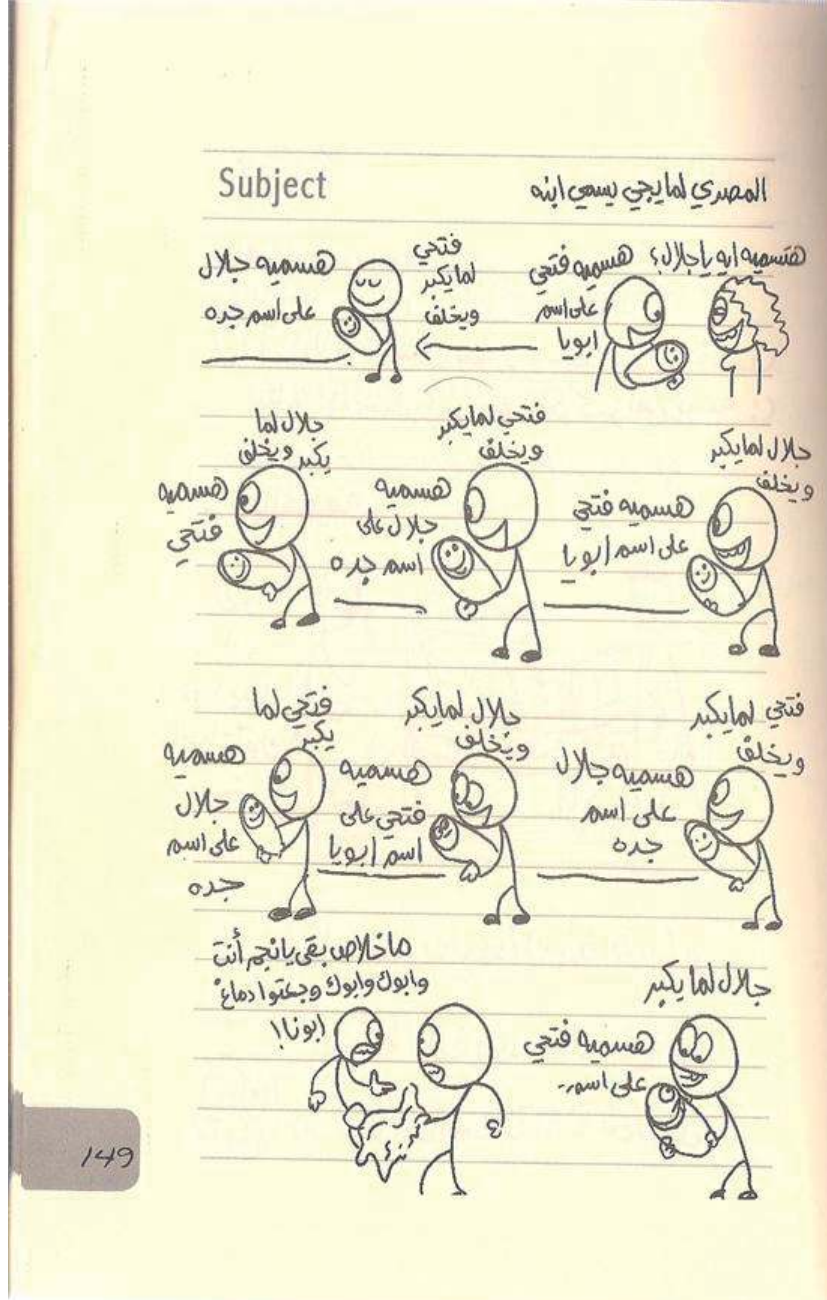 Subject
المصري لما يجي يسمي ابنه
هتسميه ايه يا جلال؟
هسميه فتحي
على اسم
ابويا
فتحي
لما يكبر
ويخلف
هسميه جلال
على اسم جده
جلال لما يكبر
ويخلف
هسميه فتحي
على اسم ابويا
فتحي لما يكبر
ويخلف
هسميه
جلال على
اسم جده
جلال لما
يكبر ويخلف
هسميه
فتحي
فتحي لما يكبر
ويخلف
هسميه جلال
على اسم
جده
جلال لما يكبر
ويخلف
هسميه
فتحي على
اسم ابويا
فتحي لما
يكبر
هسميه
جلال
على اسم
جده
جلال لما يكبر
هسميه فتحي
على اسم..
ما خلاص بقى يا نجم أنت
وابوك وابوك وجعتوا دماغ
ابونا!
149